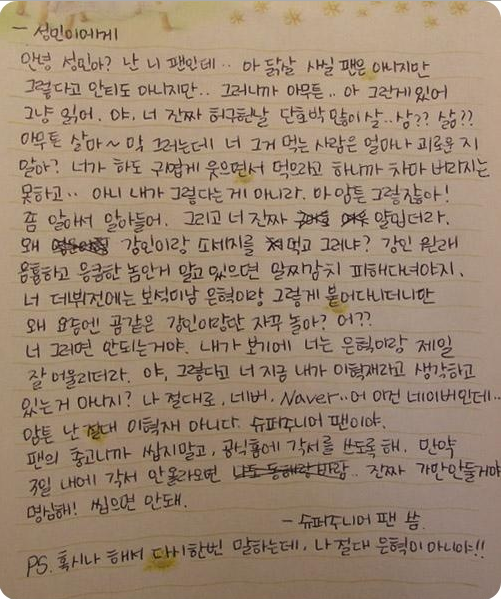 - 성민이에게
안녕 성민아? 난 니 팬인데.. 아 닭살 사실 팬은 아니지만
그렇다고 안티도 아니지만.. 그러니까 아무튼.. 아 그런게 있어
그냥 읽어. 야, 너 진짜 허구헌날 단호박 많이 살.. 삼?? 삶??
아무튼 삶아~ 막 그러는데 너 그거 먹는 사람은 얼마나 괴로운 지
알아? 너가 하도 귀엽게 웃으면서 먹으라고 하니까 차마 버리지는
못하고.. 아니 내가 그렇다는 게 아니라. 아 암튼 그렇잖아!
쫌 알아서 알아들어. 그리고 너 진짜 얄밉더라.
왜 강인이랑 쏘세지를 먹고 그러냐? 강인 원래
응흉하고 응큼한 놈인거 알고 있으면 알짜감치 피해다녀야지.
너 데뷔전에는 보석미남 은혁이랑 그렇게 붙어다니더니만
왜 요즘엔 곰같은 강인이랑만 자꾸 놀아? 어??
너 그러면 안되는거야. 내가 보기에 너는 은혁이랑 제일
잘 어울리더라. 야, 그렇다고 너 지금 내가 이혁재라고 생각하고
있는거 아니지? 나 절대로, 네버, Naver..어 이건 네이버인데..
암튼 난 절대 이혁재 아니다. 슈퍼주니어 팬이야.
팬의 충고니까 씹지말고, 공식홈에 각서를 쓰도록 해. 만약
3일 내에 각서 안올라오면 나도 동해랑 바람.. 진짜 가만안둘거야
명심해! 씹으면 안돼.
- 슈퍼주니어 팬 씀.
PS. 혹시나 해서 다시한번 말하는데, 나 절대 은혁이 아니야!!